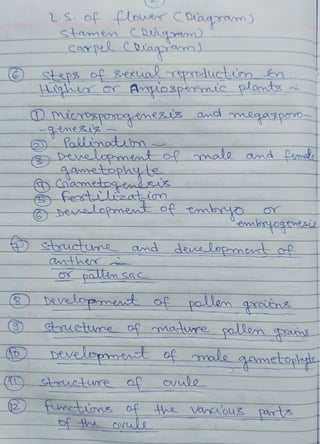 L.S. of flower (Diagram)
Stamen (Diagram)
Carpel (Diagram)
⑥ Steps of sexual reproduction In
Higher or Angiospermic plants ~
① Microsporogenesis and megaspore-
-genesis -
② Pollination -
③ Development of male and female
gametophyte
④ Gametogenesis
⑤ Fertilization
⑥ Development of embryo or
embryogenesis
⑦ Structure and development of
anther ~
or pollen sac
⑧ Development of pollen grains
⑨ Structure of mature pollen grains
⑩ Development of male gametophyte
⑪ Structure of ovule
⑫ Functions of the various parts
of the ovule